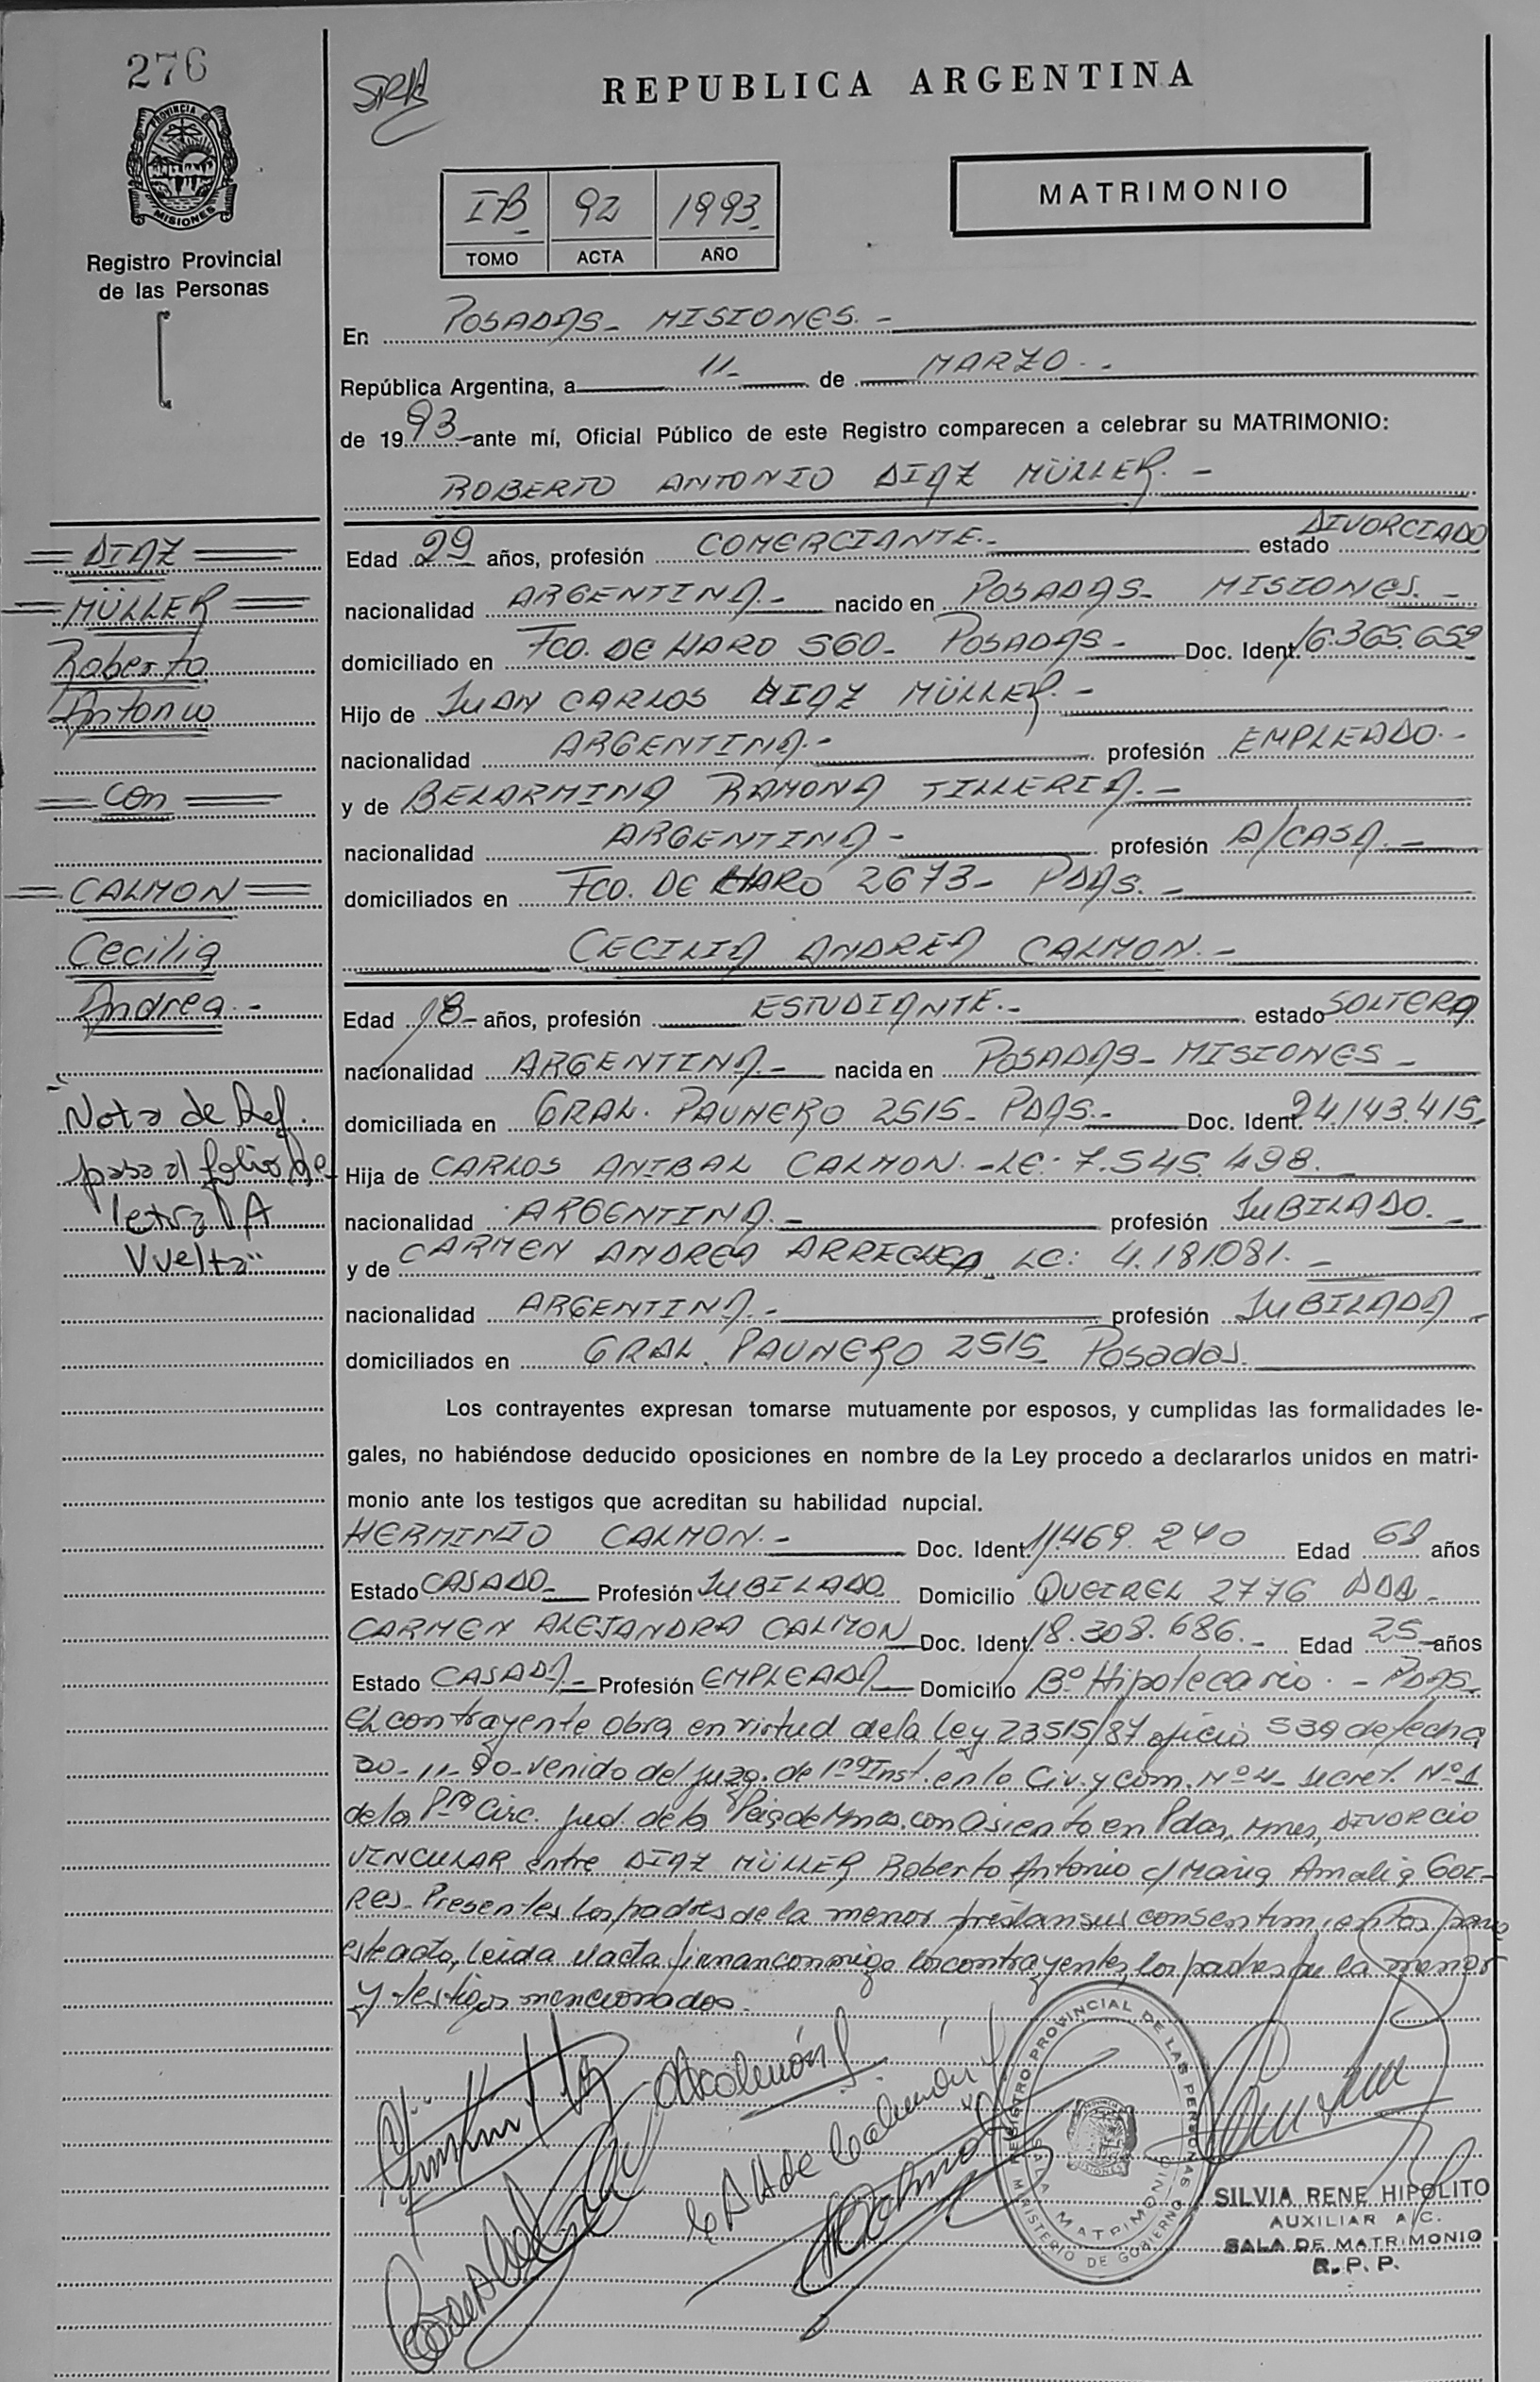 276
REPUBLICA ARGENTINA
PROVINCIA DE
MISIONES
Registro Provincial
de las Personas
MATRIMONIO
IB 92 1993
TOMO ACTA AÑO
En POSADAS- MISIONES.-
República Argentina, a 11- de MARZO.-
de 1993 ante mí, Oficial Público de este Registro comparecen a celebrar su MATRIMONIO:
ROBERTO ANTONIO DIAZ MÜLLER.-
DIAZ
MÜLLER
Roberto
Antonio
con
CALMON
Cecilia
Andrea.-
Edad 29 años, profesión COMERCIANTE.- estado DIVORCIADO
nacionalidad ARGENTINA.- nacido en POSADAS- MISIONES.-
domiciliado en FCO. DE HARO 560- POSADAS- Doc. Ident. 16.365.659
Hijo de JUAN CARLOS DIAZ MÜLLER.-
nacionalidad ARGENTINA.- profesión EMPLEADO.-
y de BELARMINA RAMONA TILLERIA.-
nacionalidad ARGENTINA- profesión A/CASA.-
domiciliados en FCO. DE HARO 2673- PDAS.-
CECILIA ANDREA CALMON.-
Edad 18- años, profesión ESTUDIANTE.- estado SOLTERA
nacionalidad ARGENTINA.- nacida en POSADAS- MISIONES-
domiciliada en GRAL. PAUNERO 2515- PDAS.- Doc. Ident. 24.143.415.
Hija de CARLOS ANIBAL CALMON.-LE: 7.545.498.-
nacionalidad ARGENTINA.- profesión JUBILADO.-
y de CARMEN ANDREA ARRECHEA LC: 4.181081.-
nacionalidad ARGENTINA.- profesión JUBILADA-
domiciliados en GRAL. PAUNERO 2515- Posadas.
"Nota de Ref.
pasa al folio de
letra A
Vuelta"
Los contrayentes expresan tomarse mutuamente por esposos, y cumplidas las formalidades le-
gales, no habiéndose deducido oposiciones en nombre de la Ley procedo a declararlos unidos en matri-
monio ante los testigos que acreditan su habilidad nupcial.
HERMINIO CALMON.- Doc. Ident. 11.469.240 Edad 69 años
Estado CASADO- Profesión JUBILADO Domicilio QUEIREL 2776
CARMEN ALEJANDRA CALMON Doc. Ident. 18.308.686.- Edad 25 años
Estado CASADA.- Profesión EMPLEADA- Domicilio Bº Hipotecario.- PDAS-
El contrayente obra en virtud de la Ley 23515/87 oficio 539 de fecha
20-11-90-venido del Juzg. de 1ra Inst. en lo Civ. y Com. Nº 4- Secret. Nº 1
de la Pra Circ. Jud. de la Pcia de Mnes. con asiento en Pdas, Mnes, DIVORCIO
VINCULAR entre DIAZ MÜLLER Roberto Antonio c/ Maria Amalia Goi-
res- Presentes los padres de la menor prestan sus consentimientos para
este acto, leida el acta firman conmigo los contrayentes, los padres de la menor
y testigos mencionados.
REGISTRO PROVINCIAL DE LAS PERSONAS
MINISTERIO DE GOBIERNO
SALA MATRIMONIO
SILVIA RENE HIPOLITO
AUXILIAR A/C.
SALA DE MATRIMONIO
R.P.P.